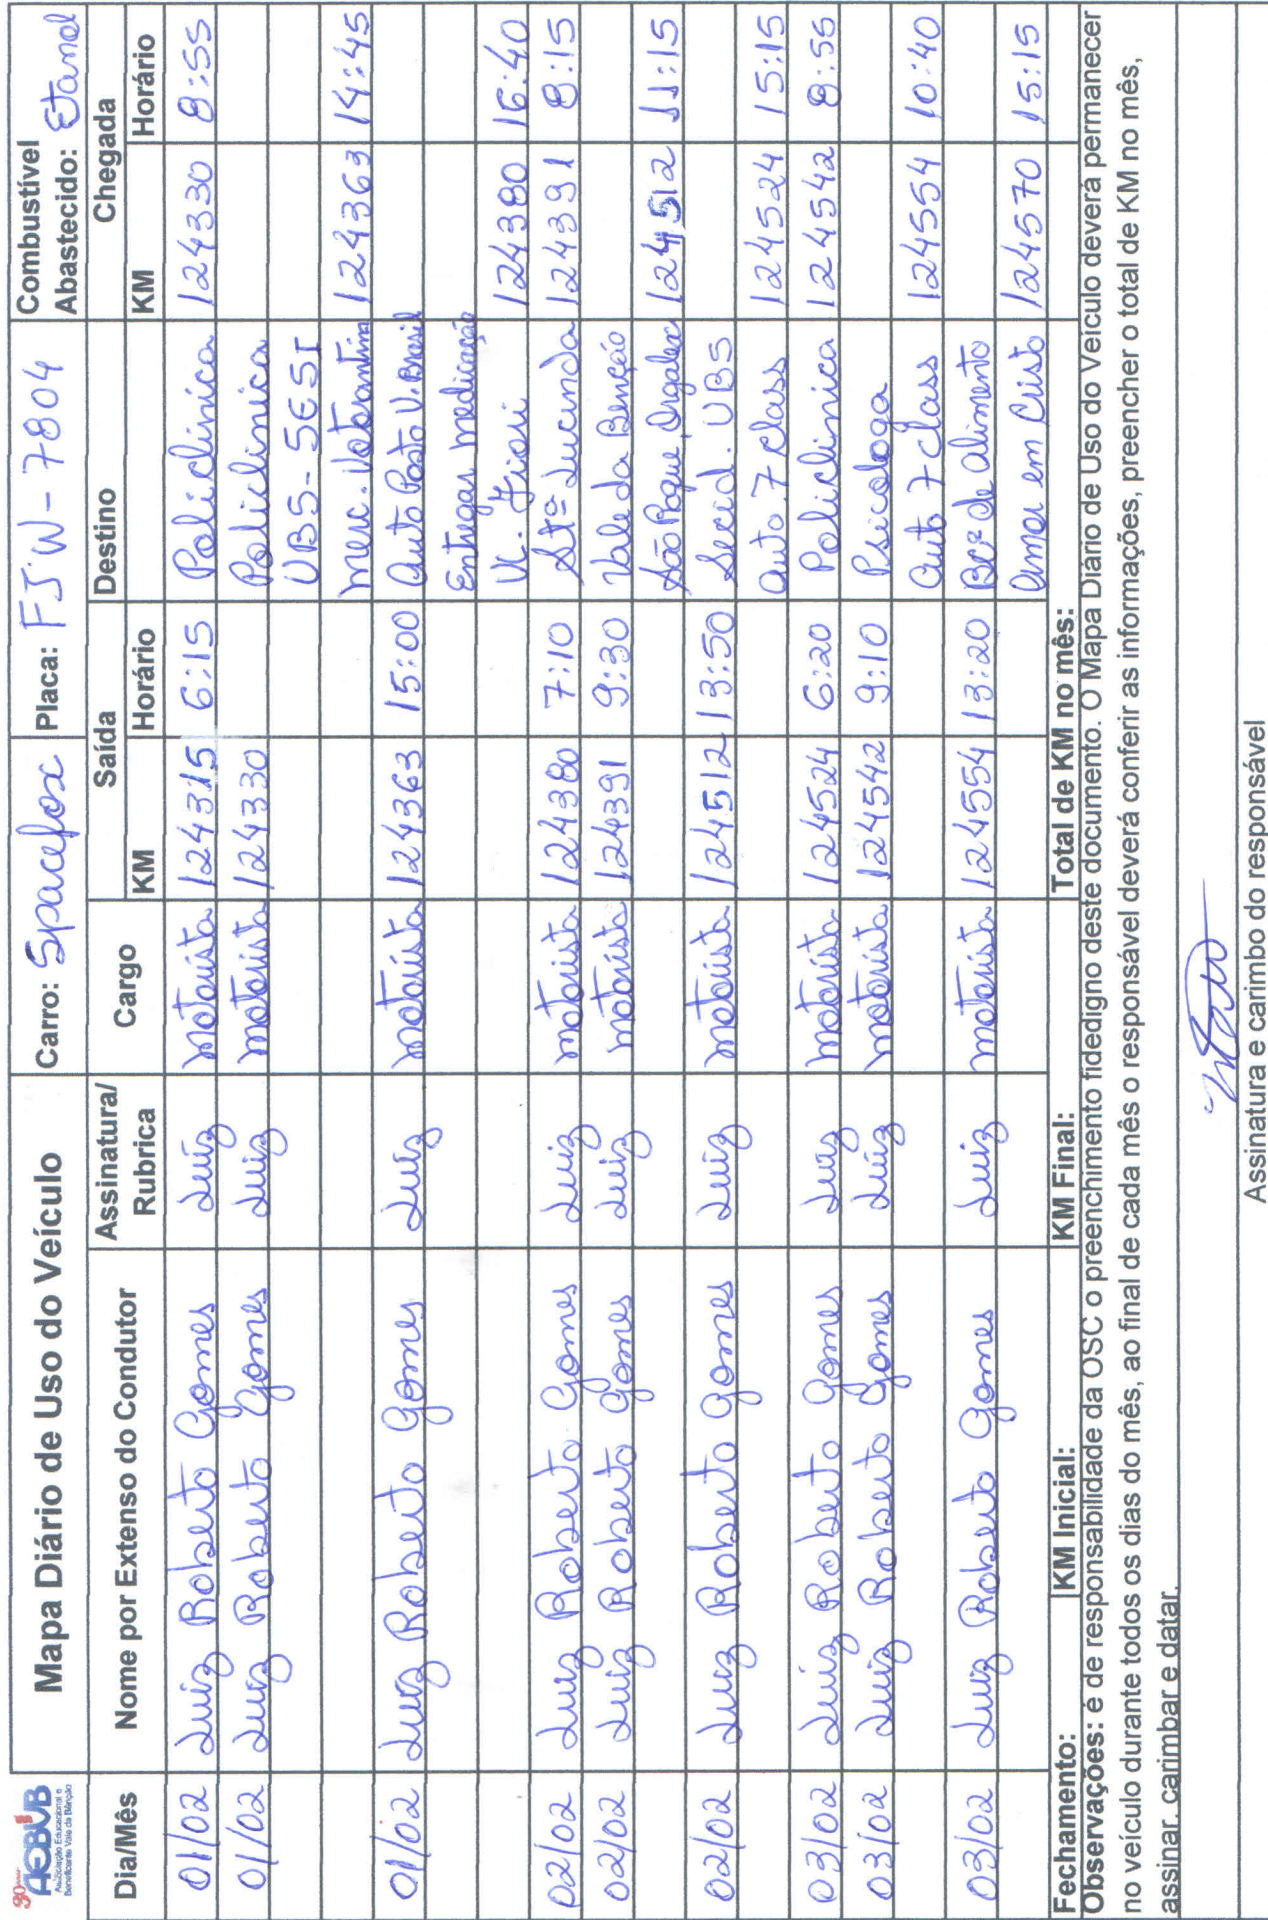 30 anos
AEBVB
Associação Educacional e
Beneficente Vale da Bênção
Mapa Diário de Uso do Veículo
Carro: Spacefox Placa: FJW-7804 Combustível
Abastecido: Etanol
Dia/Mês Nome por Extenso do Condutor Assinatura/
Rubrica Cargo Saída Destino Chegada
KM Horário KM Horário
01/02 Luiz Roberto Gomes Luiz motorista 124315 6:15 Policlínica 124330 8:55
01/02 Luiz Roberto Gomes Luiz motorista 124330 Policlínica
UBS-SESI
Merc. Votorantim 124363 14:45
01/02 Luiz Roberto Gomes Luiz motorista 124363 15:00 Auto Posto V. Brasil
Entregar medicação
Vl. Fiori 124380 16:40
02/02 Luiz Roberto Gomes Luiz motorista 124380 7:10 Stª Lucinda 124391 8:15
02/02 Luiz Roberto Gomes Luiz motorista 124391 9:30 Vale da Benção
São Roque, 124512 11:15
02/02 Luiz Roberto Gomes Luiz motorista 124512 13:50 Secid. UBS
Auto 7 class 124524 15:15
03/02 Luiz Roberto Gomes Luiz motorista 124524 6:20 Policlinica 124542 8:55
03/02 Luiz Roberto Gomes Luiz motorista 124542 9:10 Psicologa
Auto 7 class 124554 10:40
03/02 Luiz Roberto Gomes Luiz motorista 124554 13:20 Bcº de alimento
Amor em Cristo 124570 15:15
Fechamento: KM Inicial: KM Final: Total de KM no mês:
Observações: é de responsabilidade da OSC o preenchimento fidedigno deste documento. O Mapa Diário de Uso do Veículo deverá permanecer
no veículo durante todos os dias do mês, ao final de cada mês o responsável deverá conferir as informações, preencher o total de KM no mês,
assinar, carimbar e datar.
Assinatura e carimbo do responsável